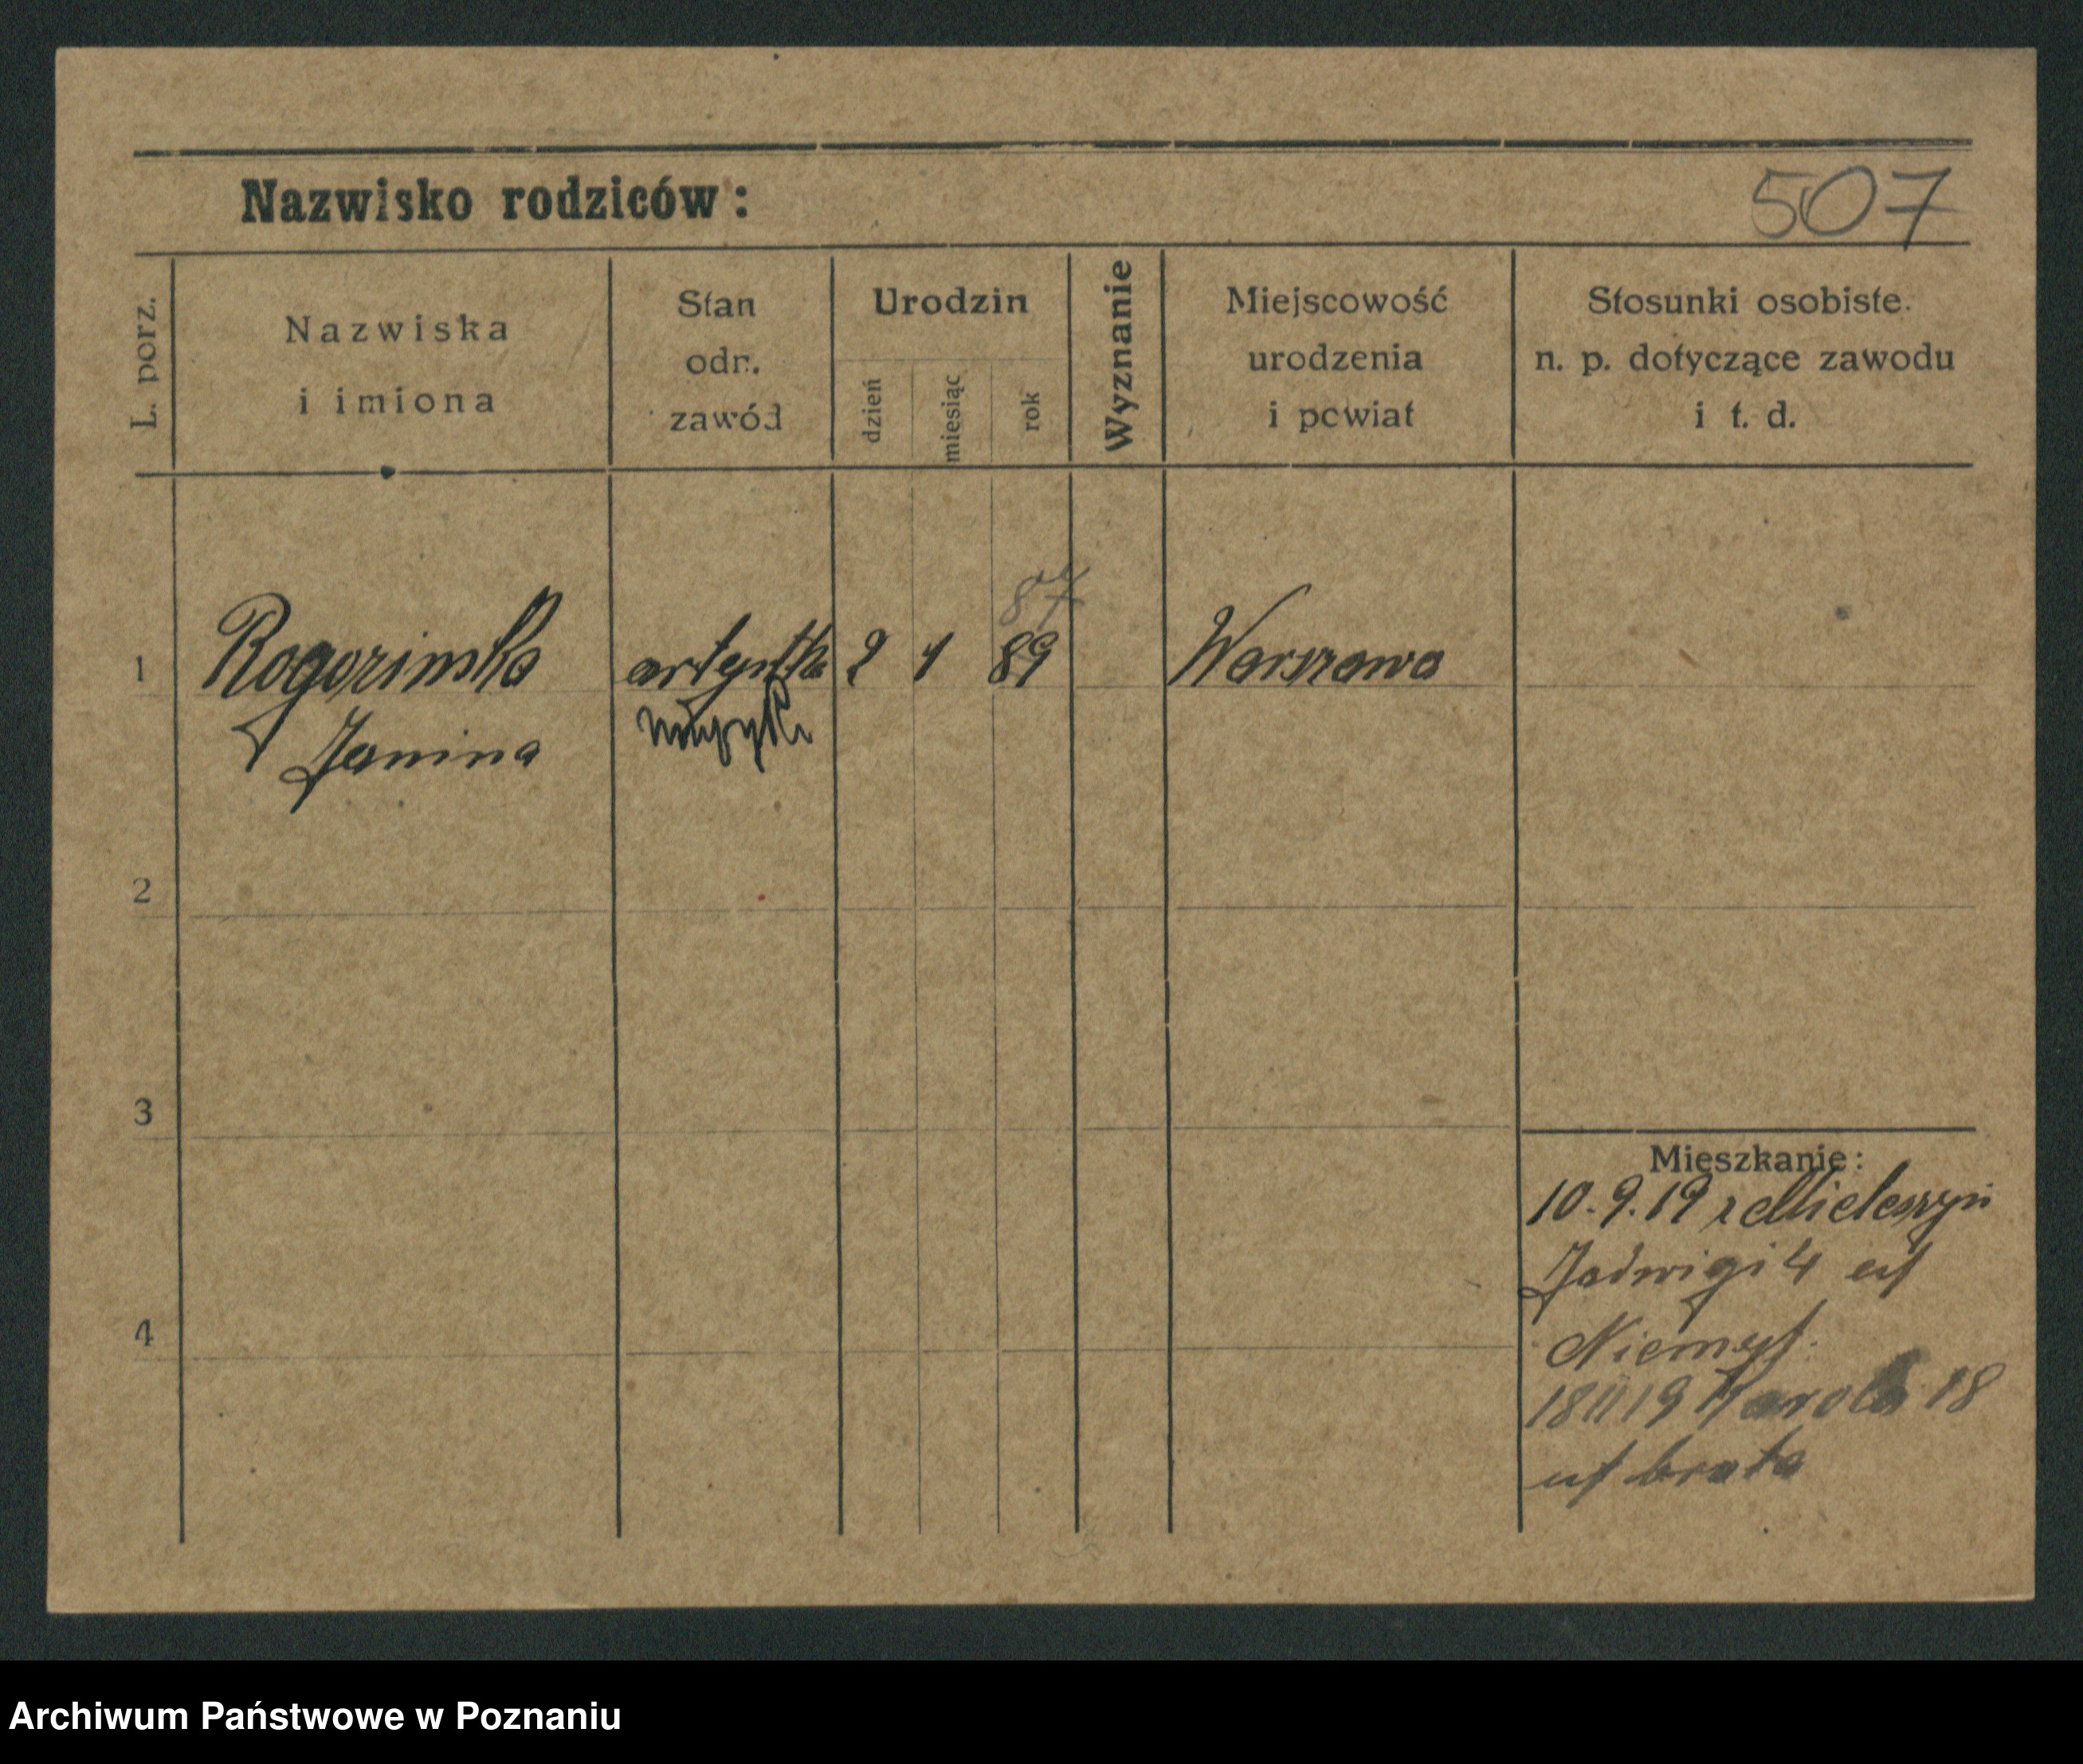 507
Nazwisko rodziców:
L. porz.
Nazwiska
i imiona
Stan
odr.
zawód
Urodzin
dzień
miesiąc
rok
Wyznanie
Miejscowość
urodzenia
i powiat
Stosunki osobiste.
n. p. dotyczące zawodu
i t. d.
87
1 Rogozinska artystka 2 1 89 Warszawa
Janina muzyki
2
3
4
Mieszkanie:
10.9.19 z Mieleszyn
Jadwigi 4
18 11 19 Karola 18
brata
Archiwum Państwowe w Poznaniu